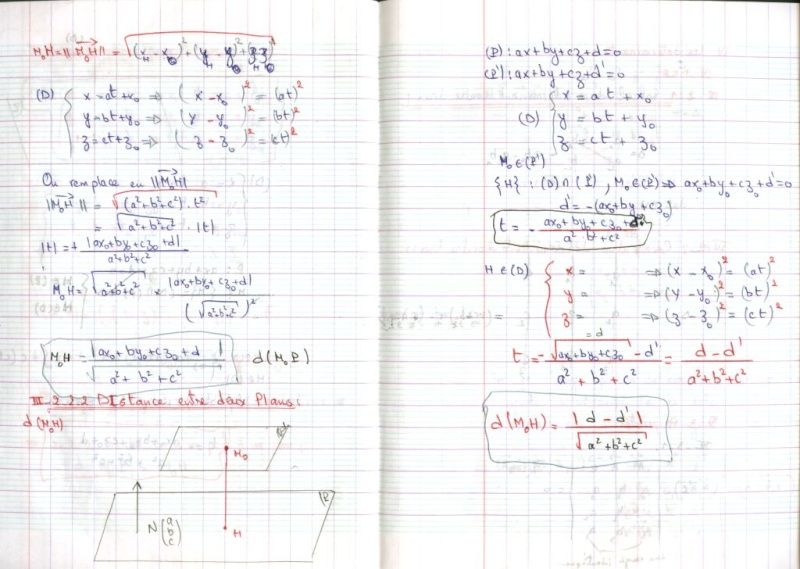 M₀H = ||M₀H|| = √(x_H - x₀)² + (y_H - y₀)² + (z_H - z₀)²
(D) { x = at + x₀ ⇒ (x - x₀)² = (at)²
y = bt + y₀ ⇒ (y - y₀)² = (bt)²
z = ct + z₀ ⇒ (z - z₀)² = (ct)²
On remplace en ||M₀H||
||M₀H|| = √(a² + b² + c²) · t²
= √a² + b² + c² · |t|
|t| = + |ax₀ + by₀ + cz₀ + d| / a² + b² + c²
M₀H = √a² + b² + c² × |ax₀ + by₀ + cz₀ + d| / (√a² + b² + c²)²
M₀H = |ax₀ + by₀ + cz₀ + d| / √a² + b² + c² d(M₀P)
III-2.2.2 Distance entre deux Plans:
d(M₀H)
P'
M₀
P
N(a b c)
H
(P) : ax + by + cz + d = 0
(P') : ax + by + cz + d' = 0
(D) { x = at + x₀
y = bt + y₀
z = ct + z₀
M₀ ∈ (P')
{H} : (D) ∩ (P), M₀ ∈ (P') ⇒ ax₀ + by₀ + cz₀ + d' = 0
d' = -(ax₀ + by₀ + cz₀)
t = - ax₀ + by₀ + cz₀ + d / a² b² + c²
H ∈ (D) { x = ⇒ (x - x₀)² = (at)²
y = ⇒ (y - y₀)² = (bt)²
z = ⇒ (z - z₀)² = (ct)²
= d
t = -√ax₀ + by₀ + cz₀ - d' / a² + b² + c² = d - d' / a² + b² + c²
d(M₀H) = |d - d'| / √a² + b² + c²